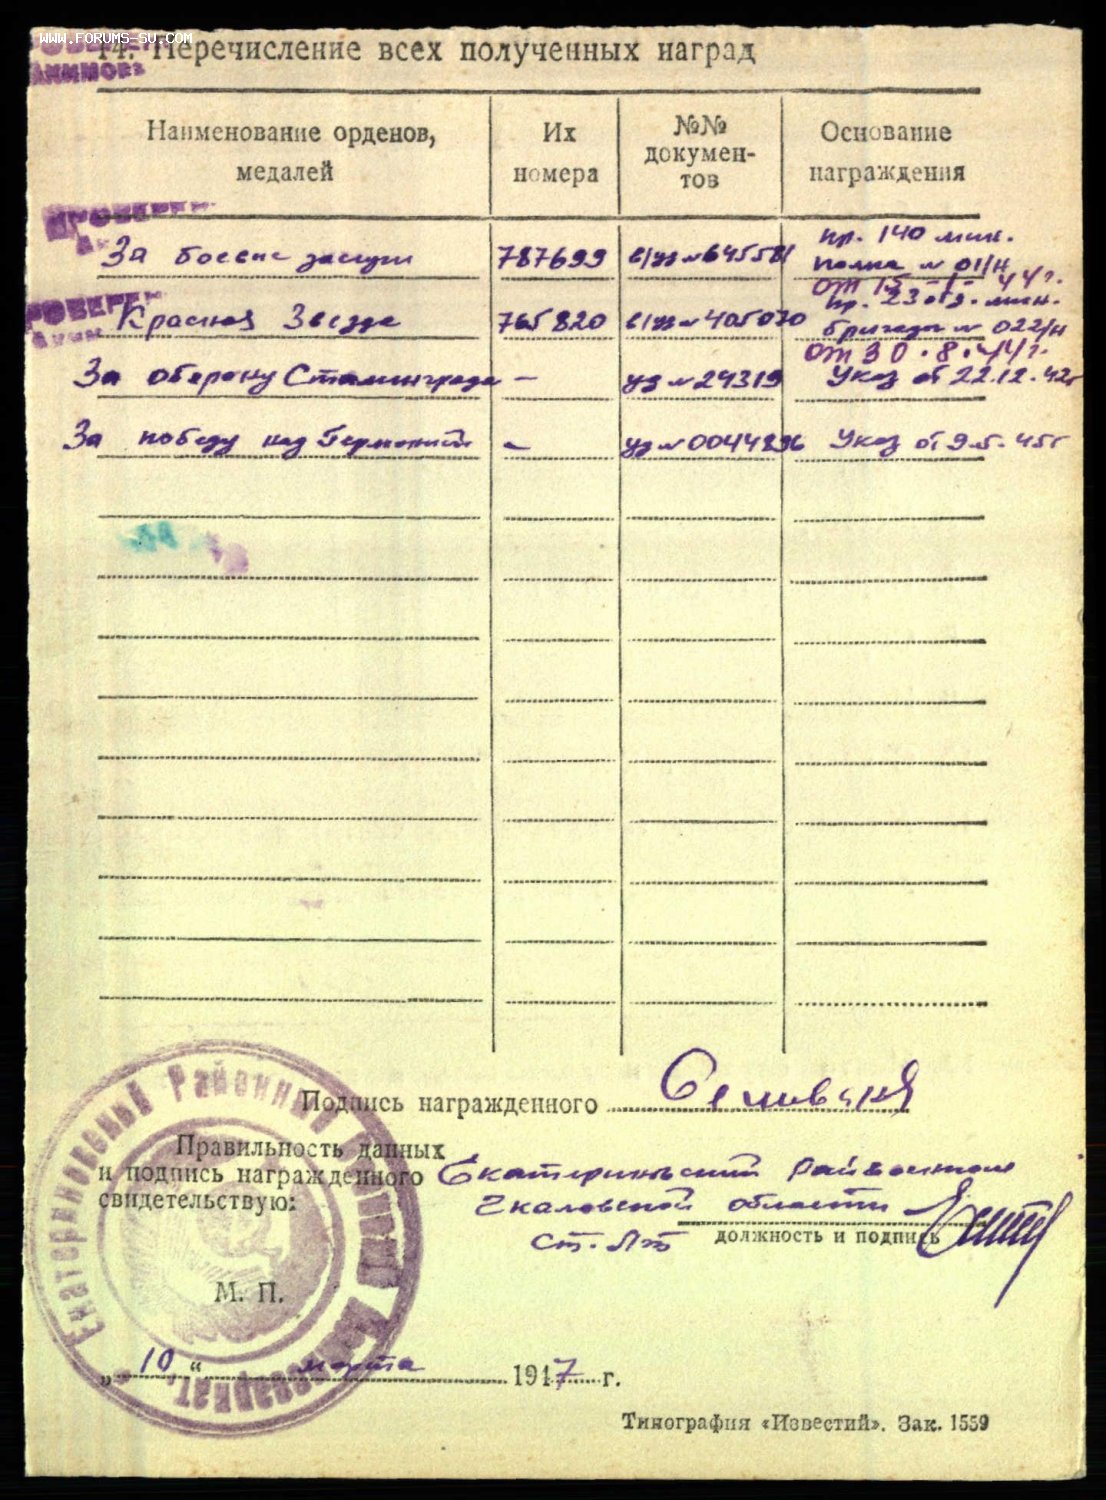 WWW.FORUMS-SU.COM
14. Перечисление всех полученных наград
Наименование орденов, медалей
Их номера
№№ докумен-тов
Основание награждения
ПРОВЕРЕН
За боевые заслуги 787699 в/уд № 645581 пр. 140 мин. полка № 01/н от 15-1-44 г.
ПРОВЕРЕН
Красная Звезда 765820 в/уд № 405070 пр. 23 отд. мин. бригады № 022/н от 30.8.44 г.
За оборону Сталинграда — уд № 24319 Указ от 22.12.42г
За победу над Германией — уд № 0044896 Указ от 9.5.45г
Подпись награжденного
Правильность данных
и подпись награжденного
свидетельствую:
Екатериновский райвоенком
Чкаловской области
ст. л-т
должность и подпись
М. П.
Екатериновский Районный Военный Комиссариат
„ 10 “ марта 1947 г.
Типография «Известий». Зак. 1559